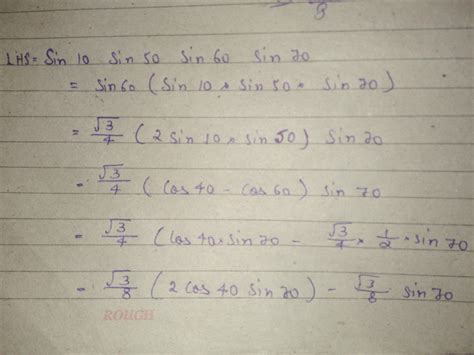 LHS = Sin 10 Sin 50 Sin 60 Sin 70
= Sin 60 ( Sin 10 * Sin 50 * Sin 70 )
= √3/4 ( 2 Sin 10 * Sin 50 ) Sin 70
= √3/4 ( Cos 40 - Cos 60 ) Sin 70
= √3/4 ( Cos 40 * Sin 70 - √3/4 * 1/2 * Sin 70
= √3/8 ( 2 Cos 40 Sin 70 ) - √3/8 Sin 70
ROUGH